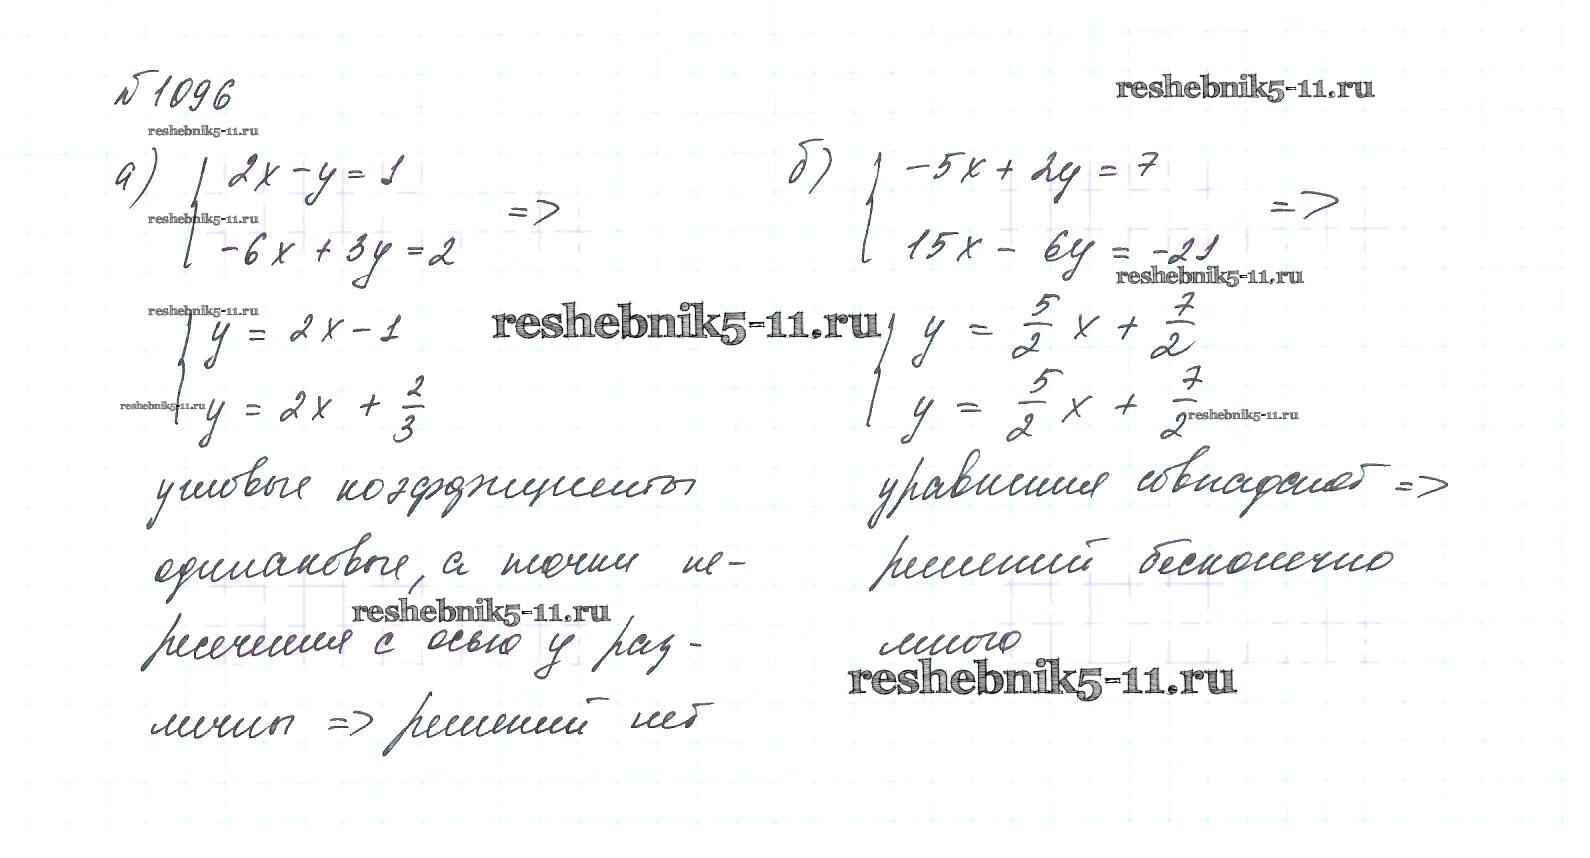 №1096
reshebnik5-11.ru
reshebnik5-11.ru
а) { 2x - y = 1 =>
reshebnik5-11.ru
-6x + 3y = 2
reshebnik5-11.ru
y = 2x - 1
reshebnik5-11.ru
reshebnik5-11.ru y = 2x + 2/3
угловые коэффициенты
одинаковые, а точки пе-
reshebnik5-11.ru
ресечения с осью y раз-
личны => решений нет
б) { -5x + 2y = 7 =>
15x - 6y = -21
reshebnik5-11.ru
y = 5/2 x + 7/2
y = 5/2 x + 7/2
reshebnik5-11.ru
уравнения совпадают =>
решений бесконечно
много
reshebnik5-11.ru